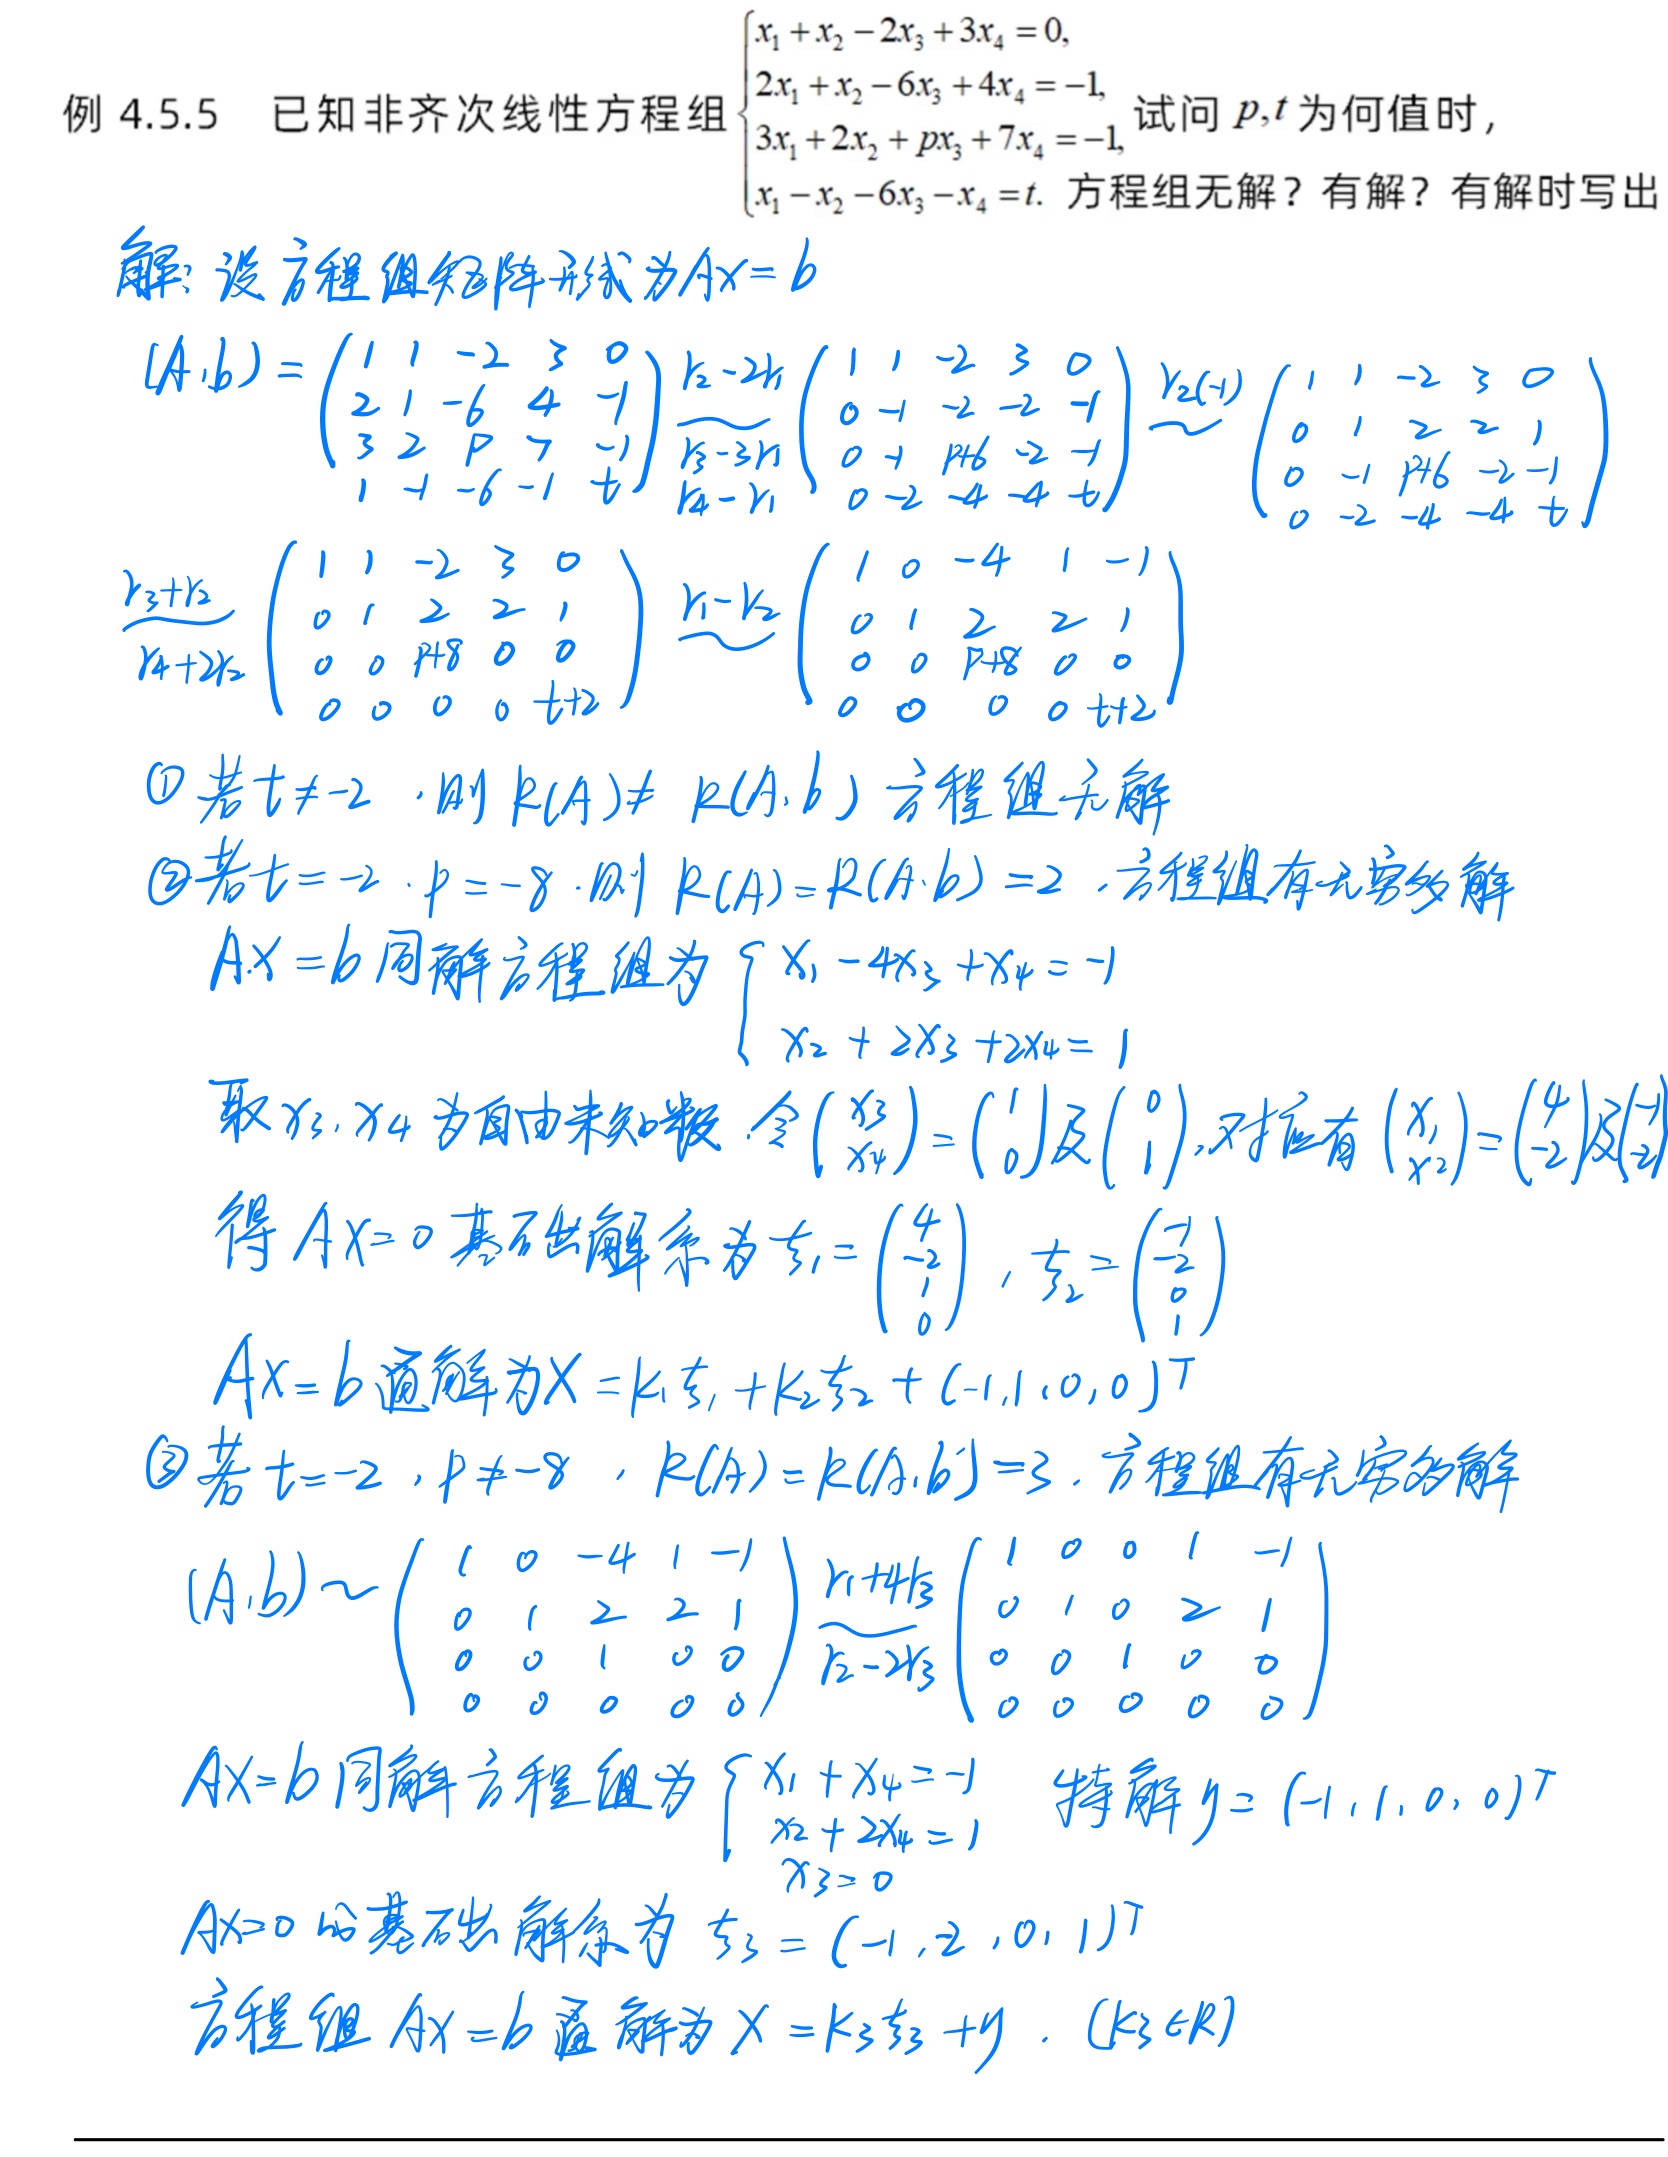 例 4.5.5 已知非齐次线性方程组 { x₁ + x₂ − 2x₃ + 3x₄ = 0,
2x₁ + x₂ − 6x₃ + 4x₄ = −1,
3x₁ + 2x₂ + px₃ + 7x₄ = −1, 试问 p,t 为何值时,
x₁ − x₂ − 6x₃ − x₄ = t. 方程组无解? 有解? 有解时写出
解: 设方程组矩阵形式为AX=b
(A,b) = ( 1 1 -2 3 0 ; 2 1 -6 4 -1 ; 3 2 p 7 -1 ; 1 -1 -6 -1 t ) r₂-2r₁ ~ r₃-3r₁ r₄-r₁ ( 1 1 -2 3 0 ; 0 -1 -2 -2 -1 ; 0 -1 p+6 -2 -1 ; 0 -2 -4 -4 t ) r₂(-1) ~ ( 1 1 -2 3 0 ; 0 1 2 2 1 ; 0 -1 p+6 -2 -1 ; 0 -2 -4 -4 t )
r₃+r₂ ~ r₄+2r₂ ( 1 1 -2 3 0 ; 0 1 2 2 1 ; 0 0 p+8 0 0 ; 0 0 0 0 t+2 ) r₁-r₂ ~ ( 1 0 -4 1 -1 ; 0 1 2 2 1 ; 0 0 p+8 0 0 ; 0 0 0 0 t+2 )
① 若t≠-2, 则R(A)≠R(A,b) 方程组无解
② 若t=-2, p=-8, 则R(A)=R(A,b)=2, 方程组有无穷多解
AX=b同解方程组为 { x₁-4x₃+x₄=-1
x₂+2x₃+2x₄=1
取x₃,x₄为自由未知数, 令(x₃ ; x₄)=(1 ; 0)及(0 ; 1), 对应有(x₁ ; x₂)=(4 ; -2)及(-1 ; -2)
得AX=0基础解系为ξ₁=( 4 ; -2 ; 1 ; 0 ), ξ₂=( -1 ; -2 ; 0 ; 1 )
AX=b通解为X=k₁ξ₁+k₂ξ₂+(-1,1,0,0)ᵀ
③ 若t=-2, p≠-8, R(A)=R(A,b)=3, 方程组有无穷多解
(A,b)~( 1 0 -4 1 -1 ; 0 1 2 2 1 ; 0 0 1 0 0 ; 0 0 0 0 0 ) r₁+4r₃ ~ r₂-2r₃ ( 1 0 0 1 -1 ; 0 1 0 2 1 ; 0 0 1 0 0 ; 0 0 0 0 0 )
AX=b同解方程组为 { x₁+x₄=-1 特解y=(-1,1,0,0)ᵀ
x₂+2x₄=1
x₃=0
AX=0的基础解系为ξ₃=(-1,-2,0,1)ᵀ
方程组AX=b通解为X=k₃ξ₃+y. (k₃∈R)